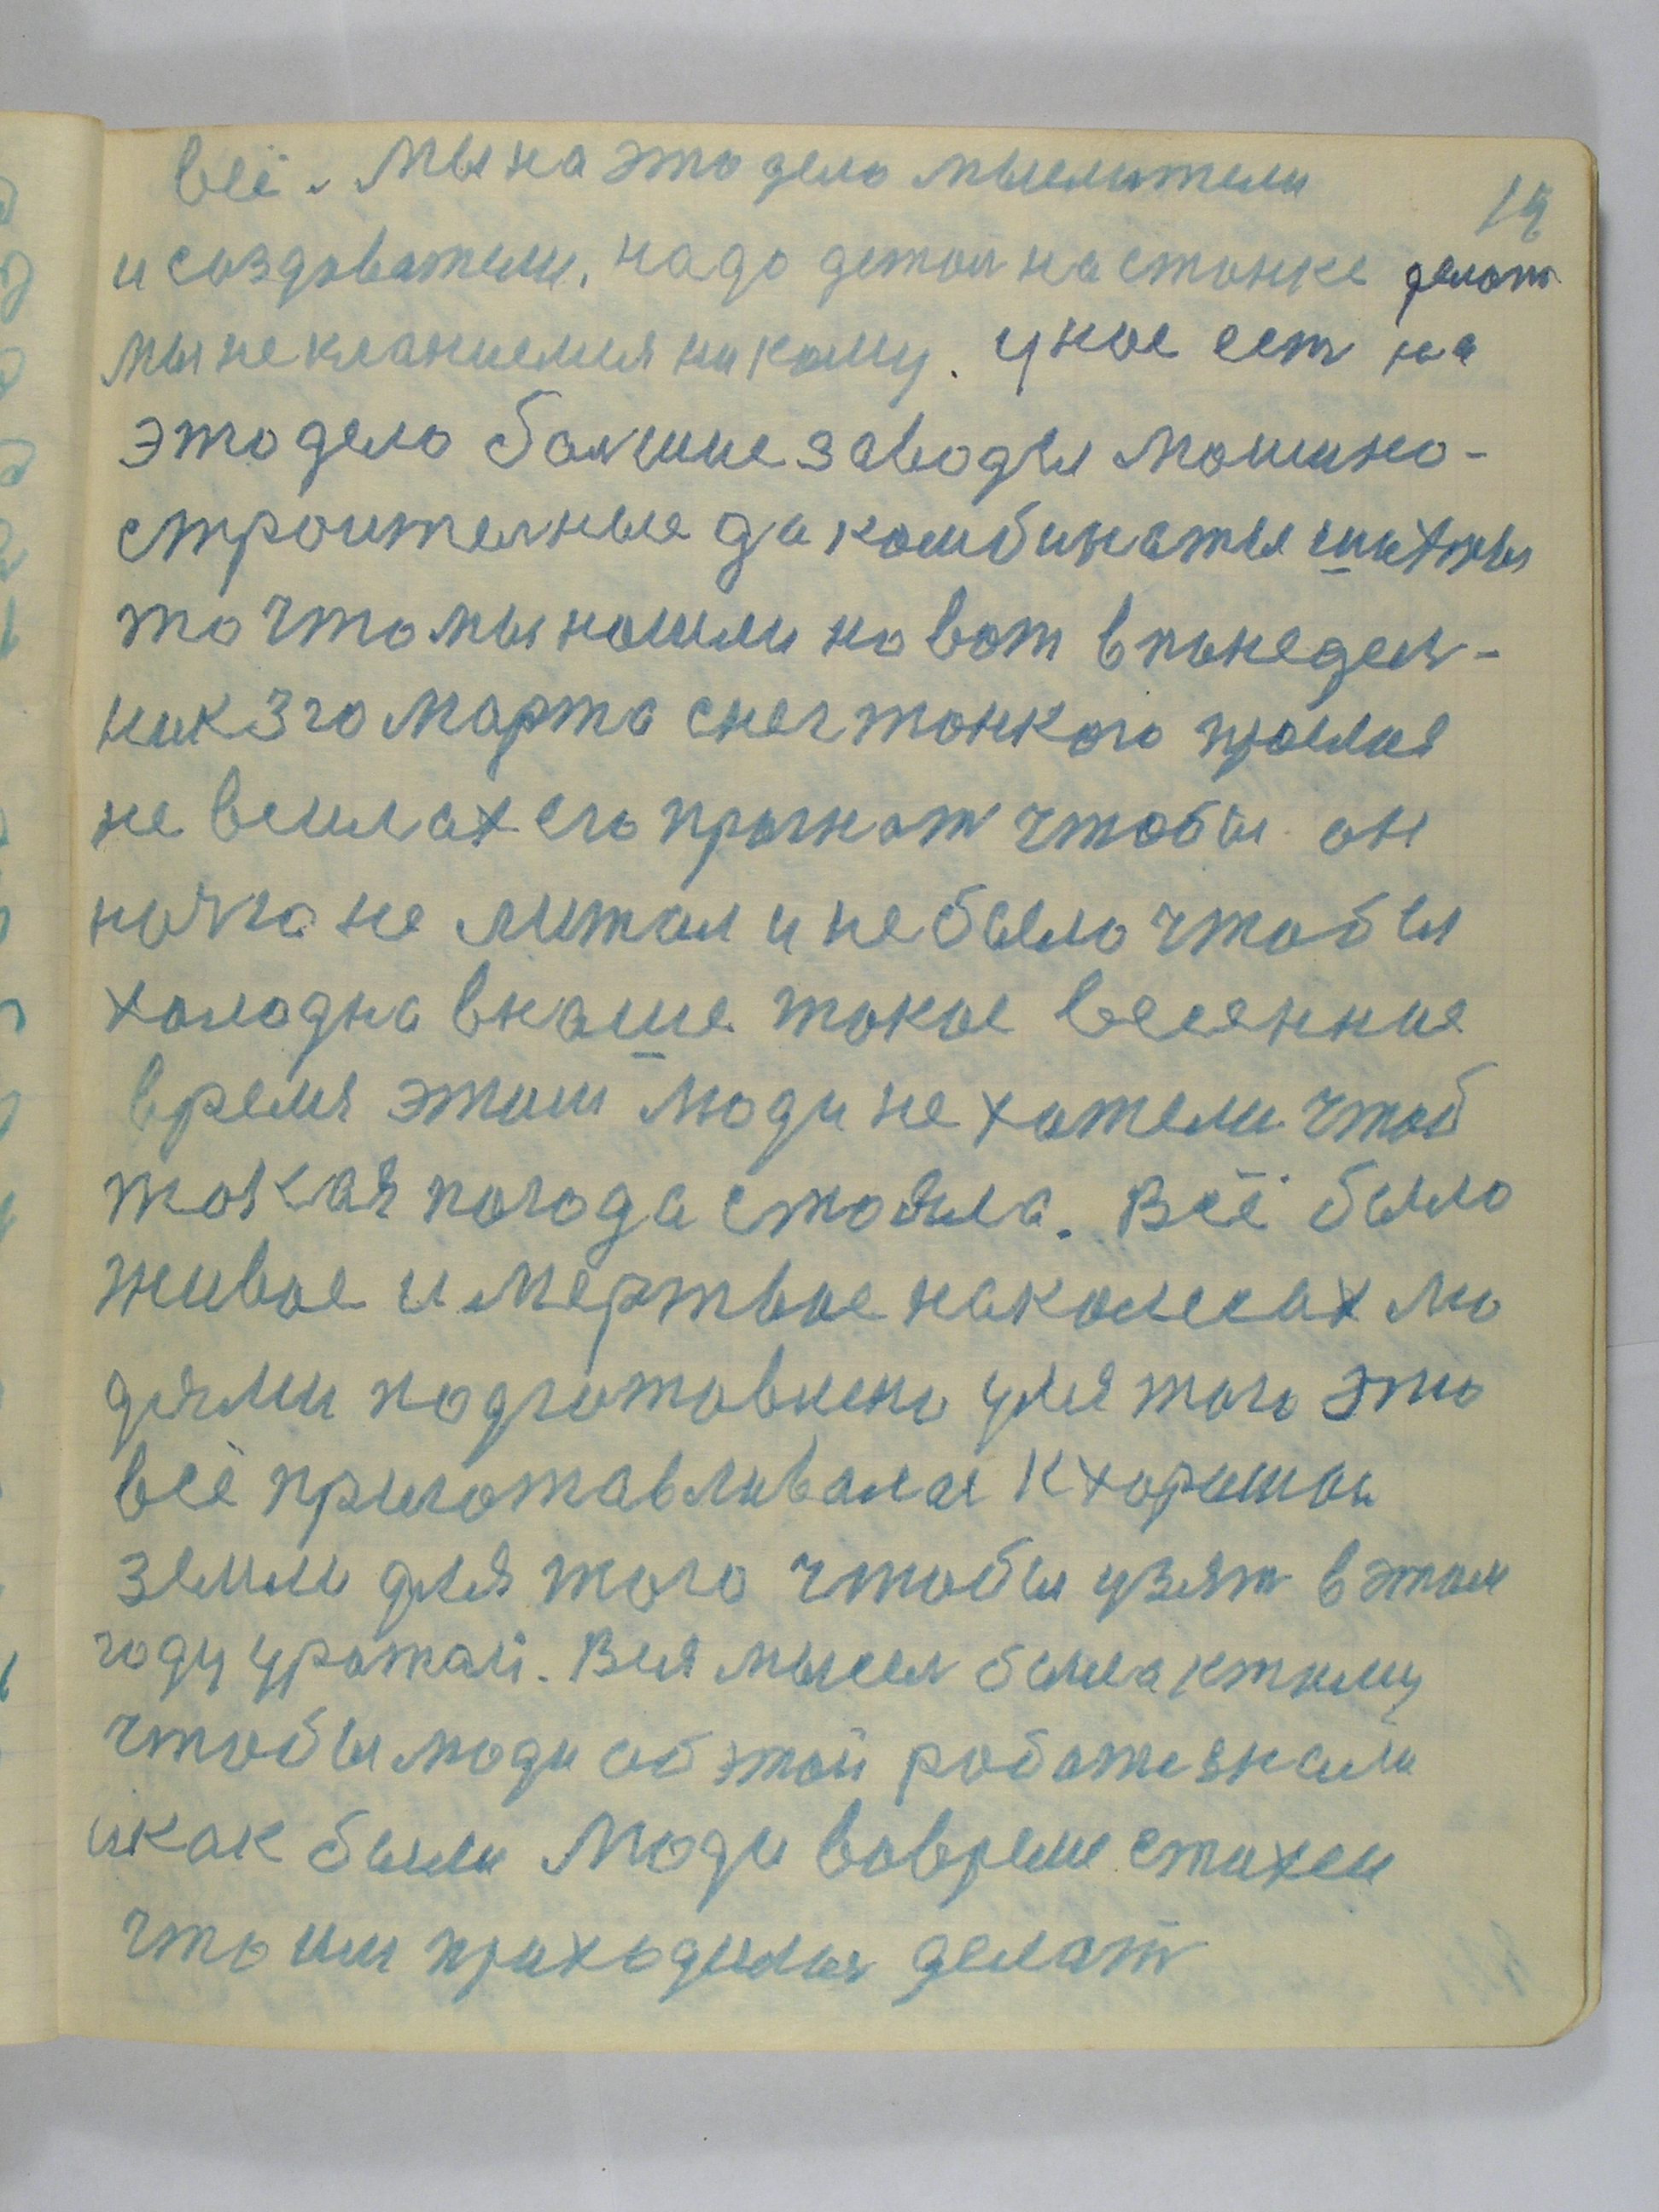 всё. Мы на это дело мыслители
19
и создователи, надо детои на станке делат
мы не кланиемся никому. У нас ест на
это дело болшие заводы машино-
строителные да комбинаты шахты
то что мы нашли но вот в понедел-
ник 3го марта снег тонкого
не в силах его прогнат чтобы он
не литал и не было чтобы
холодно в наше такое весенние
время эташ люди не хотели чтоб
такая погода стояла. Всё было
живое и мертвое на колесах лю
дями подготовлено для того это
всё приготавливалас к хорошои
земли для того чтобы узят в этом
году урожай. Вся мысел была к тому
чтобы люди об этой работе знали
и как были люди во время стихеи
что им приходилося делат